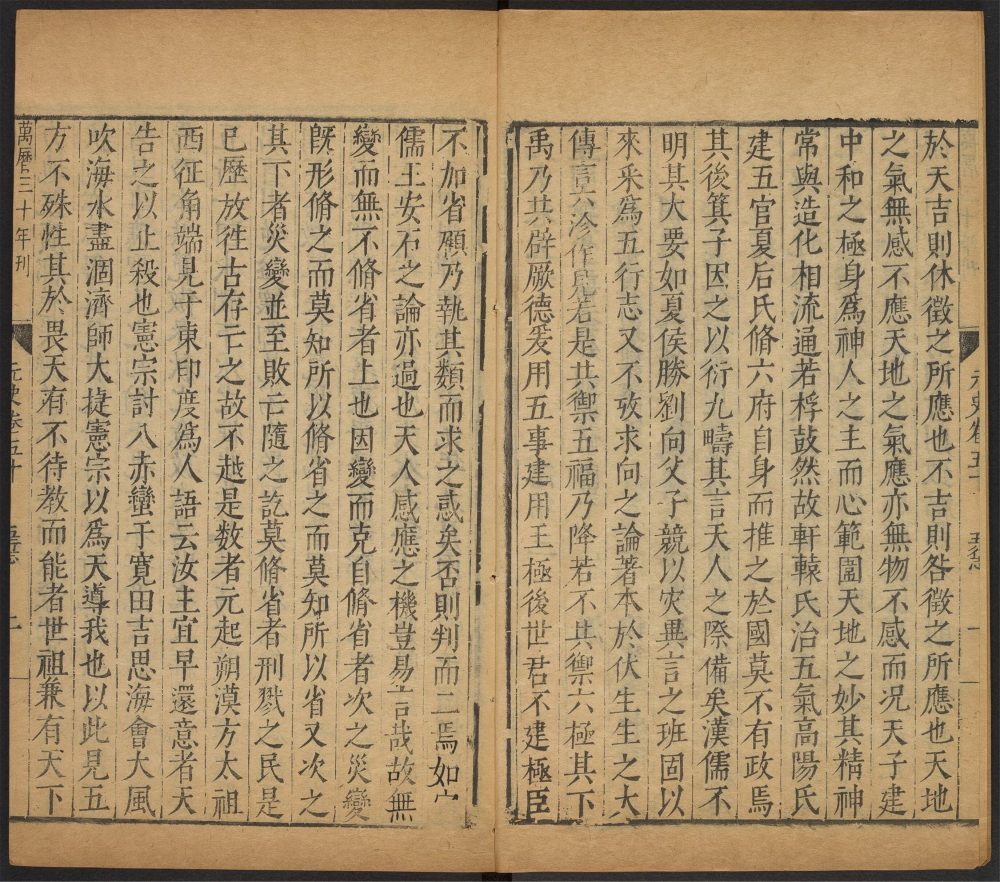 於天吉則休徵之所應也不吉則咎徵之所應也天地
之氣無感不應天地之氣應亦無物不感而况天子建
中和之極身爲神人之主而心範圍天地之妙其精神
常與造化相流通若桴鼓然故軒轅氏治五氣高陽氏
建五官夏后氏脩六府自身而推之於國莫不有政焉
其後箕子因之以衍九疇其言天人之際備矣漢儒不
明其大要如夏侯勝劉向父子競以灾異言之班固以
來采爲五行志又不攷求向之論著本於伏生生之大
傳言六沴作見若是共禦五福乃降若不共禦六極其下
禹乃共辟厥德爰用五事建用王極後世君不建極臣
元史卷五十
五行志
一
不加省顧乃執其類而求之惑矣否則判而二焉如宋
儒王安石之論亦過也天人感應之機豈易言哉故無
變而無不脩省者上也因變而克自脩省者次之災變
旣形脩之而莫知所以脩省之而莫知所以省又次之
其下者災變並至敗亡隨之訖莫脩省者刑戮之民是
已歷放徃古存亡之故不越是数者元起朔漠方太祖
西征角端見于東印度爲人語云汝主宜早還意者天
告之以止殺也憲宗討八赤蠻于寬田吉思海會大風
吹海水盡涸濟師大捷憲宗以爲天導我也以此見五
方不殊性其於畏天有不待教而能者世祖兼有天下
萬曆三十年刊
元史卷五十
二